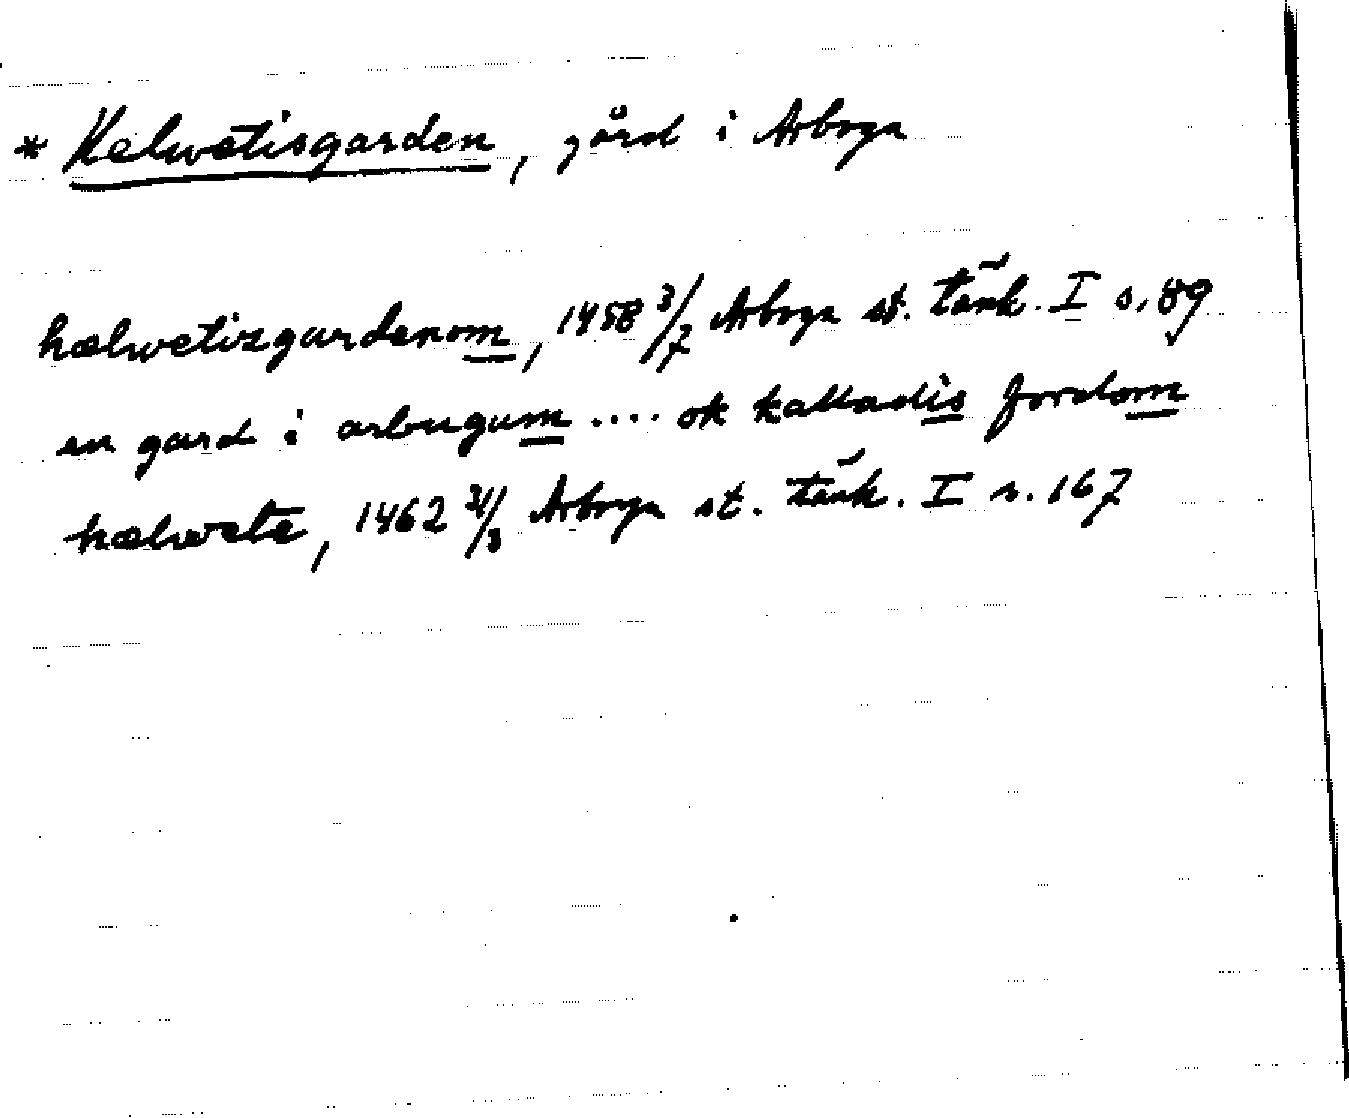 * Helwetisgarden, gård i Arboga
hælwetizgardenom, 1458 3/7 Arboga st. tänk. I s. 89
en gard i arbugum .... ok kalladis fordom
hælwete, 1462 31/3 Arboga st. tänk. I s. 167